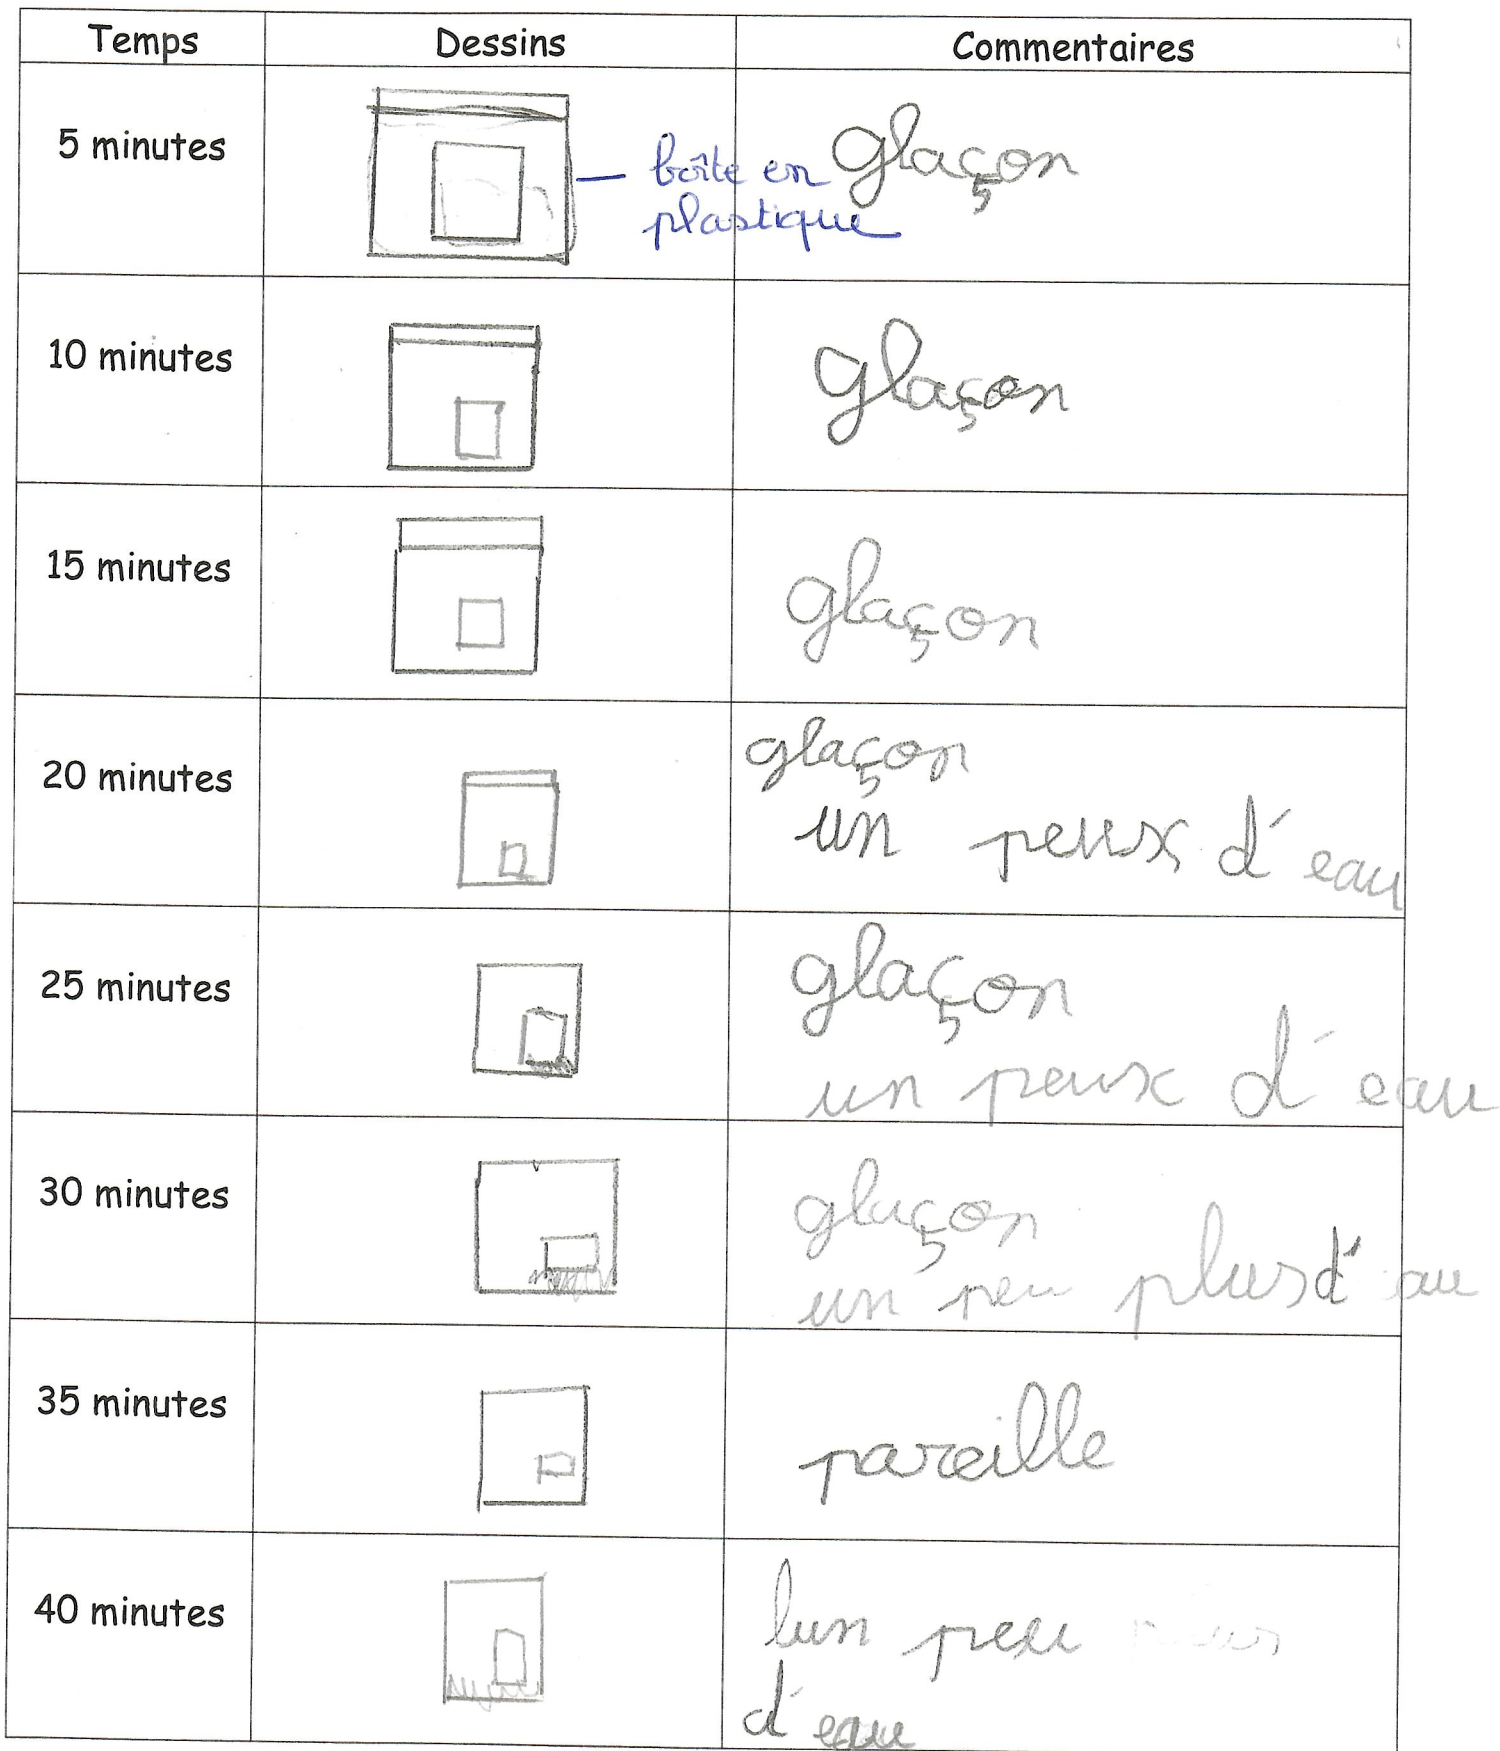 Temps Dessins Commentaires
5 minutes
boîte en glaçon
plastique
10 minutes glaçon
15 minutes glaçon
20 minutes glaçon
un peux d'eau
25 minutes glaçon
un peux d'eau
30 minutes glaçon
un peu plus d'au
35 minutes pareille
40 minutes lun peu
d'eau